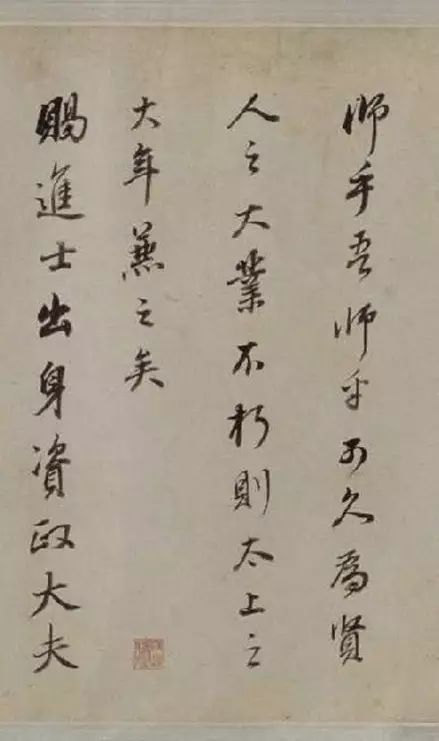 師乎吾師乎可久為賢
人之大業不朽則太上之
大年兼之矣
賜進士出身資政大夫